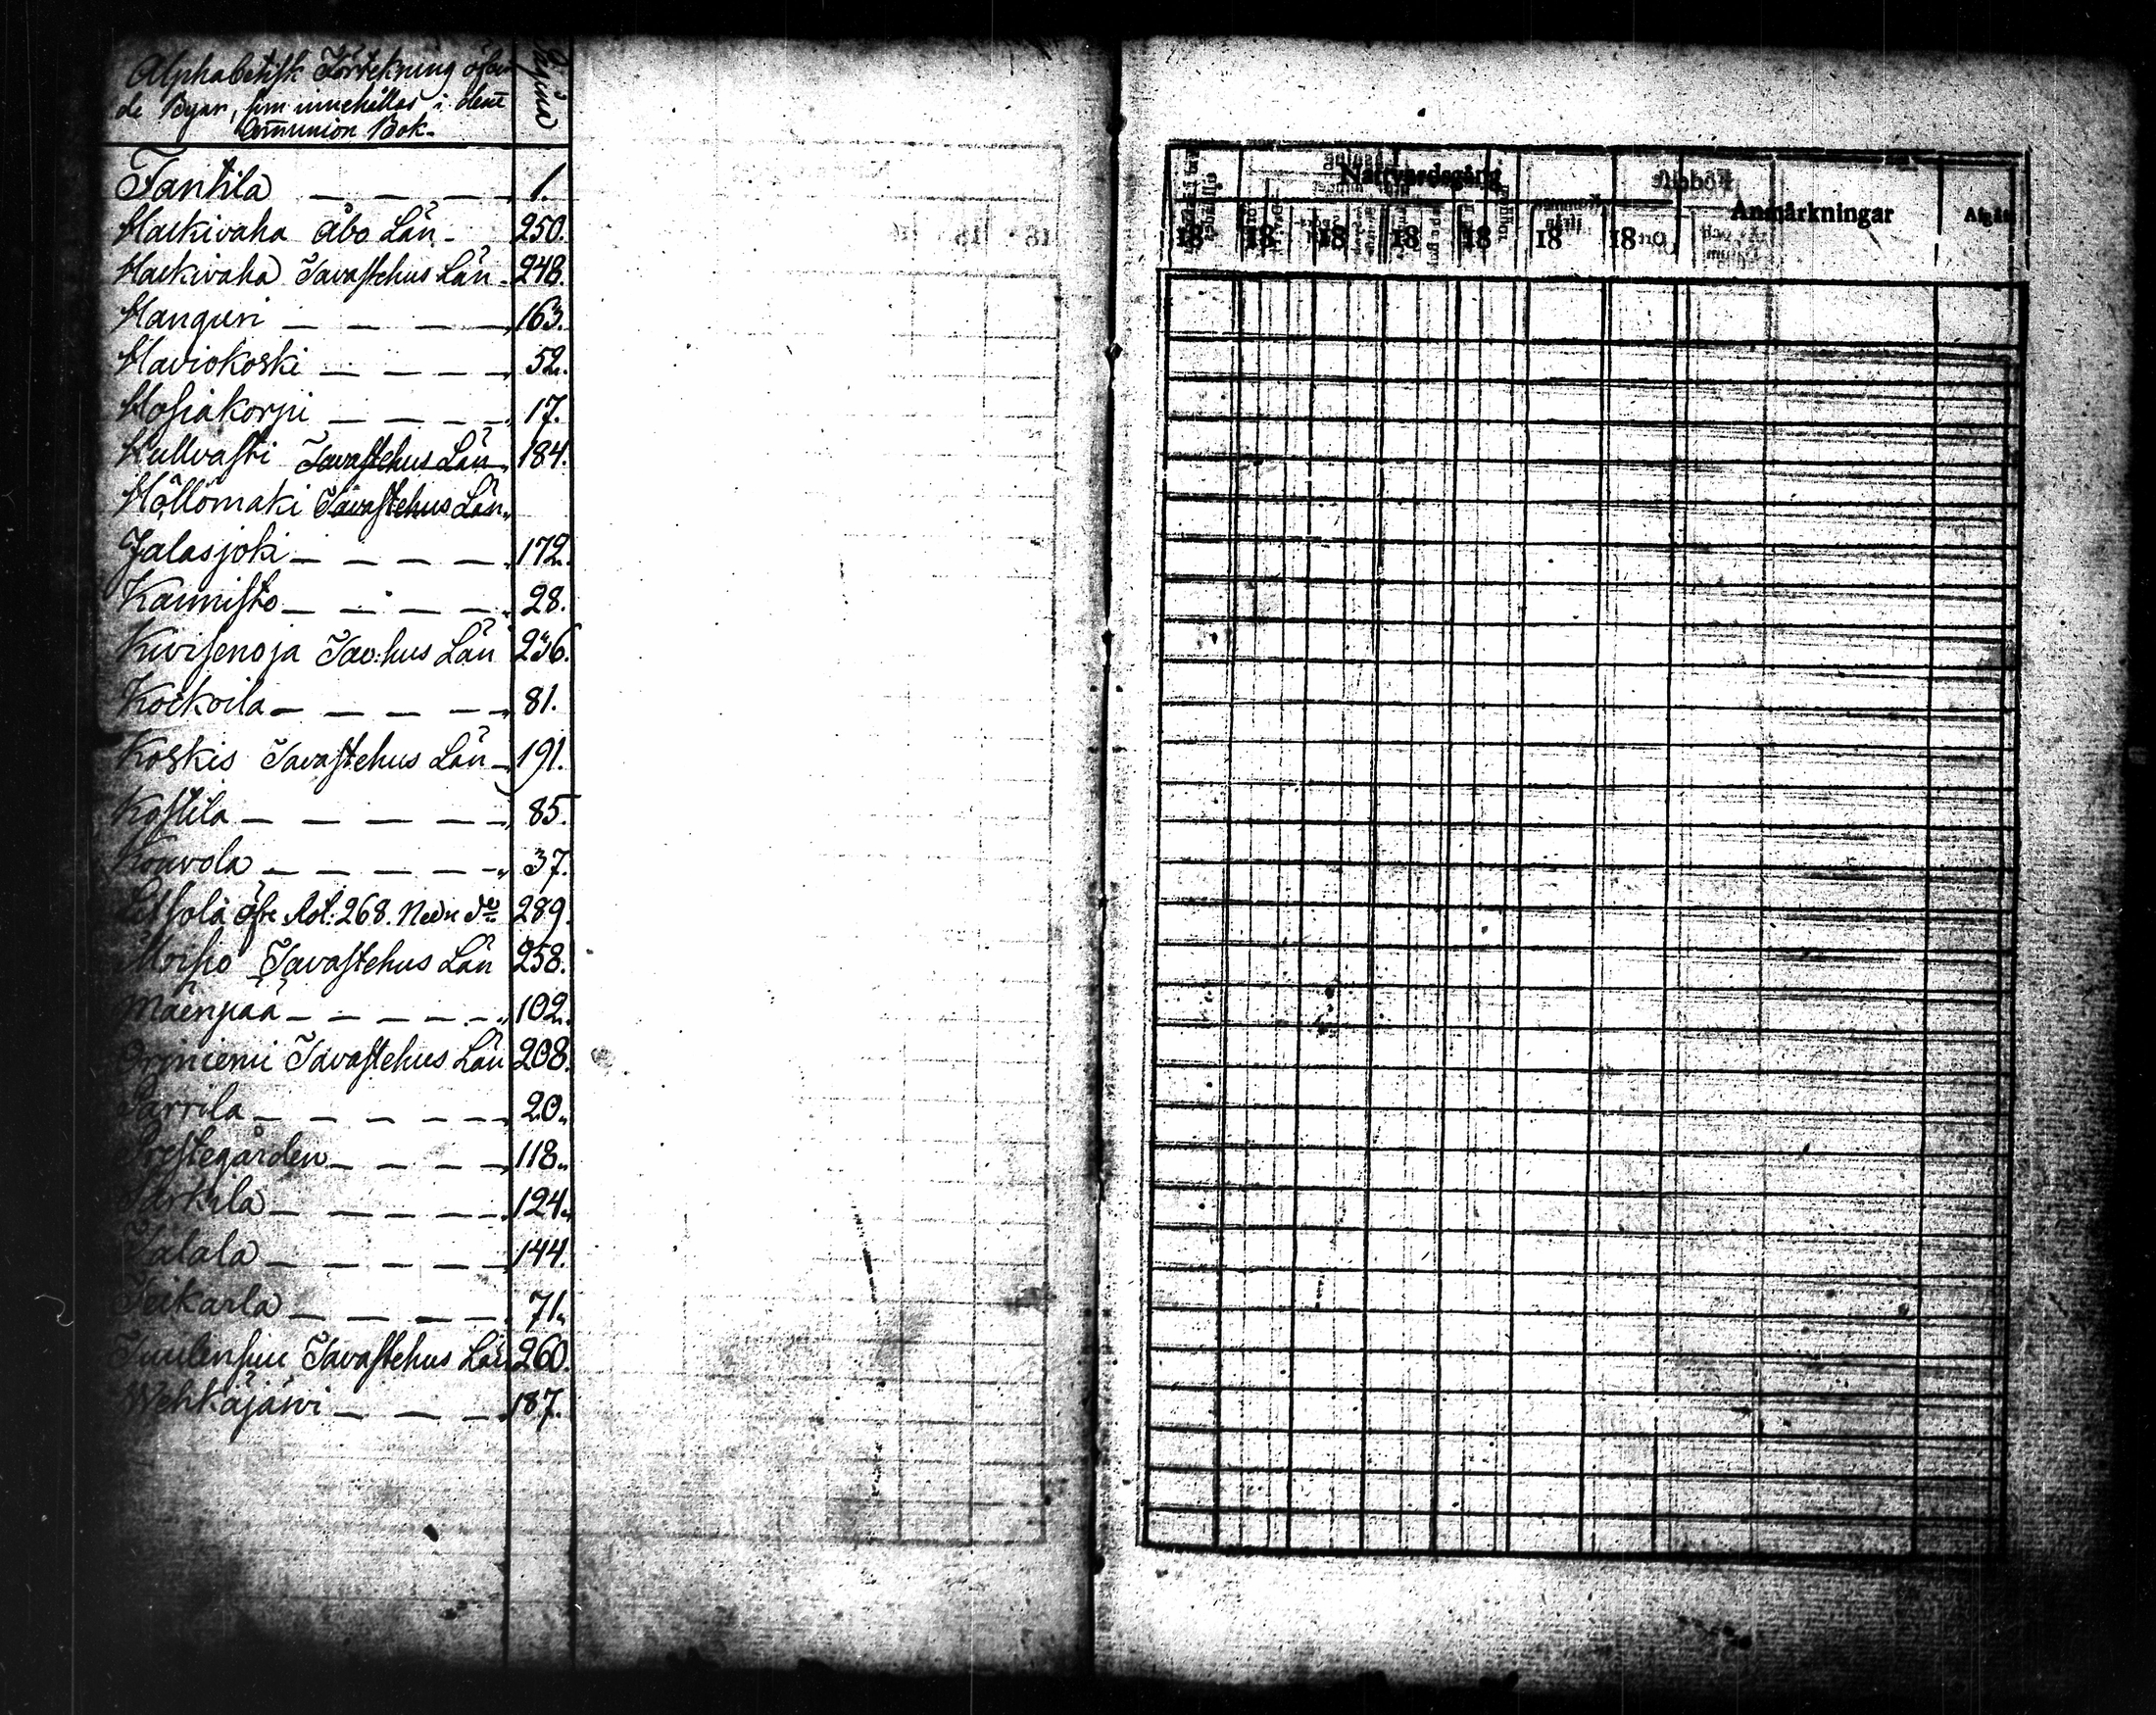 Alphabetisk Förtekning öfver
de Byar, som innehållas i denē
Com̄union Bok.
Pagina
Fantila — — — — 1.
Harkivaha Åbo Län — 250.
Harkivaha Tavastehus Län — 248.
Hanguri — — — — 163.
Haviokoski — — — — 52.
Hosiakorpi — — — — 17.
Hullvasti Tavastehus Län — 184.
Höllömäki Tavastehus Län
Jalasjoki — — — — 172.
Kaunisto — — — — 28.
Kivisenoja Tav:hus Län 236.
Kockoila — — — — 81.
Koskis Tavastehus Län — 191.
Kostila — — — — — 85.
Kouvola — — — — — 37.
öfre fol: 268. Nedre d:o 289.
Moisio Tavastehus Län 258.
Mäenpää — — — — — 102.
Oriniemi Tavastehus Län 208.
Parrila — — — — — 20.
Prestegården — — — — 118.
124.
Talala — — — — — 144.
Teikarla — — — — 71.
Tuulensuu Tavastehus Län 260.
Wehkäjärvi — — — — 187.
Nattvardsgång
Anmärkningar
18 18 18 18 18 18 18